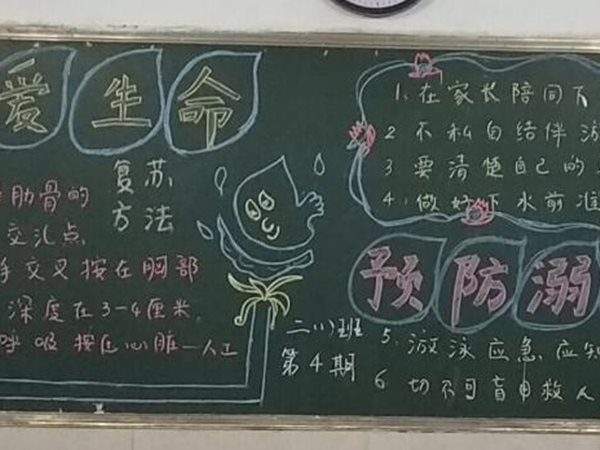 爱生命
复苏
方法
肋骨的
交汇点,
手交叉按在胸部
深度在3-4厘米,
呼吸 按压心脏—人工
二(1)班
第4期
1、在家长陪同下
2 不私自结伴游
3 要清楚自己的
4、做好下水前准
预防溺
5、游泳应急应知
6、切不可盲目救人